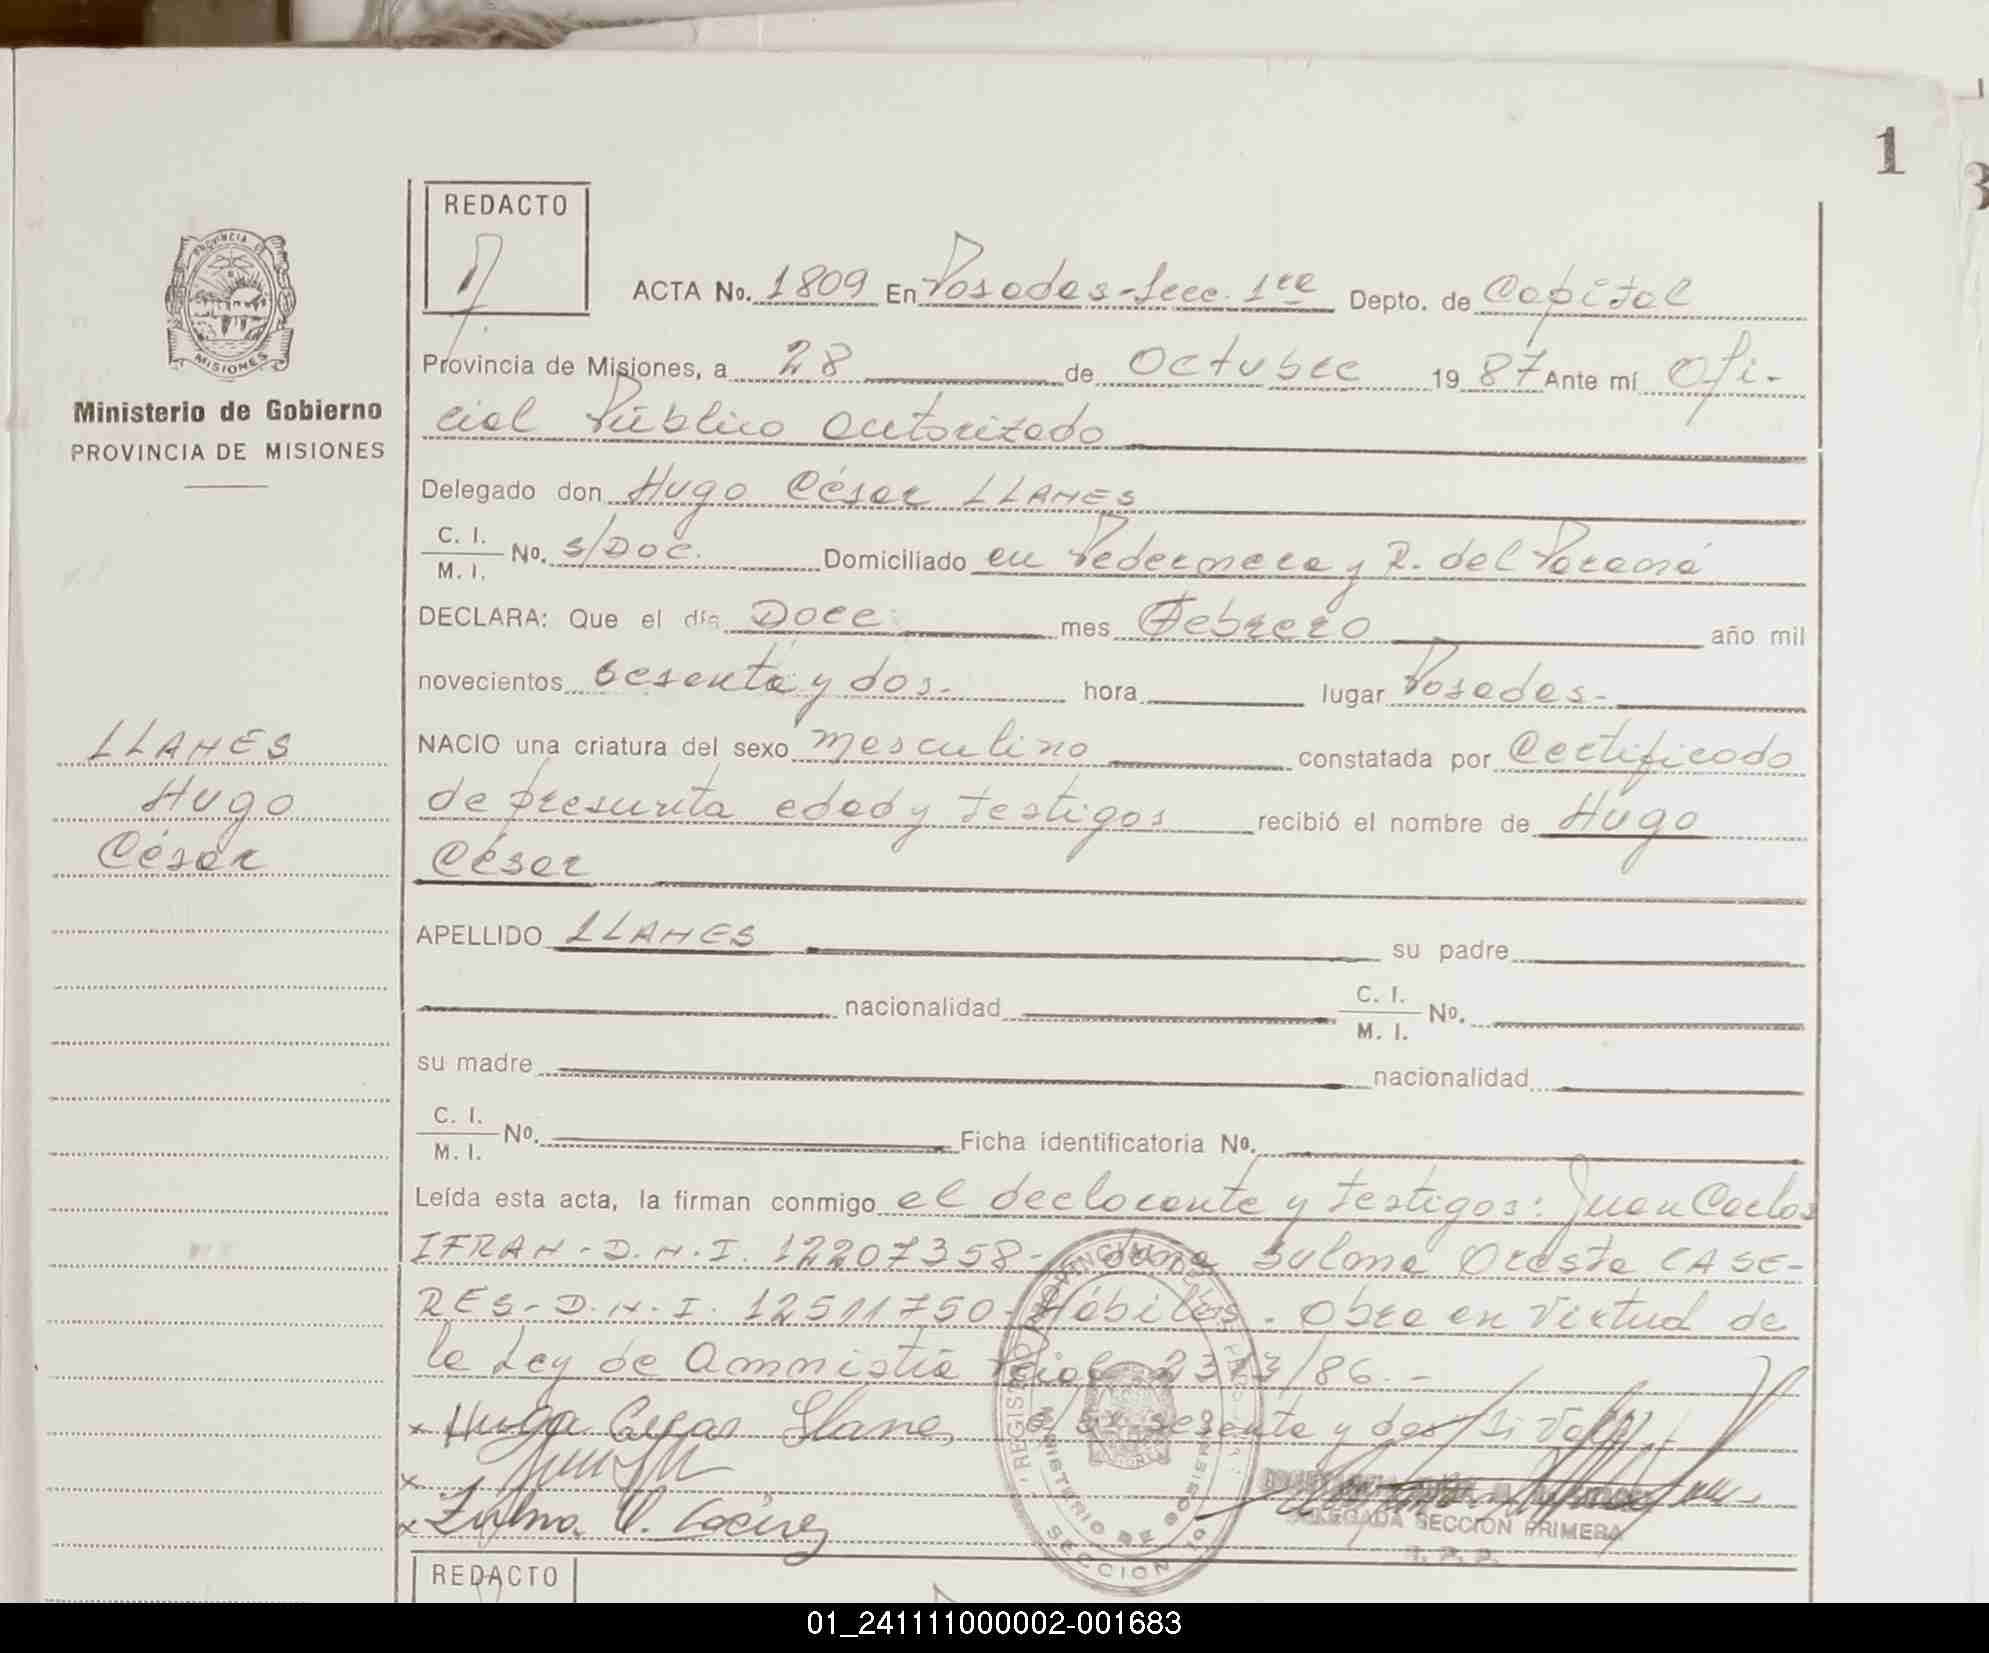 1
3
REDACTO
ACTA No. 1809 En Posadas-Secc. 1ra Depto. de Capital
Provincia de Misiones, a 28 de Octubre 1987 Ante mí Ofi-
cial Público autorizado
Ministerio de Gobierno
PROVINCIA DE MISIONES
Delegado don Hugo César LLANES
C. I.
M. I. No. S/DOC. Domiciliado en Pedernera y R. del Paraná
DECLARA: Que el día Doce mes Febrero año mil
novecientos sesenta y dos.- hora lugar Posadas-
NACIO una criatura del sexo masculino constatada por Certificado
de presunta edad y testigos recibió el nombre de Hugo
César
LLANES
Hugo
César
APELLIDO LLANES su padre
nacionalidad C. I. M. I. No.
su madre nacionalidad
C. I.
M. I. No. Ficha identificatoria No.
Leída esta acta, la firman conmigo el declarante y testigos: Juan Carlos
IFRAN-D.N.I. 12207358- doña Sulma Oresta CASE-
RES-D.N.I. 12511750- Hábiles. Obra en virtud de
la Ley de Amnistía Pcial 2313/86.-
x Hugo Cesar Llanes sesenta y dos/Si Vale/
x
x Zulma
REGISTRO PROVINCIAL
MINISTERIO DE GOBIERNO
SECCION 1a
DELEGADA SECCION PRIMERA
R. P. P.
REDACTO
PROVINCIA DE
MISIONES
01_241111000002-001683